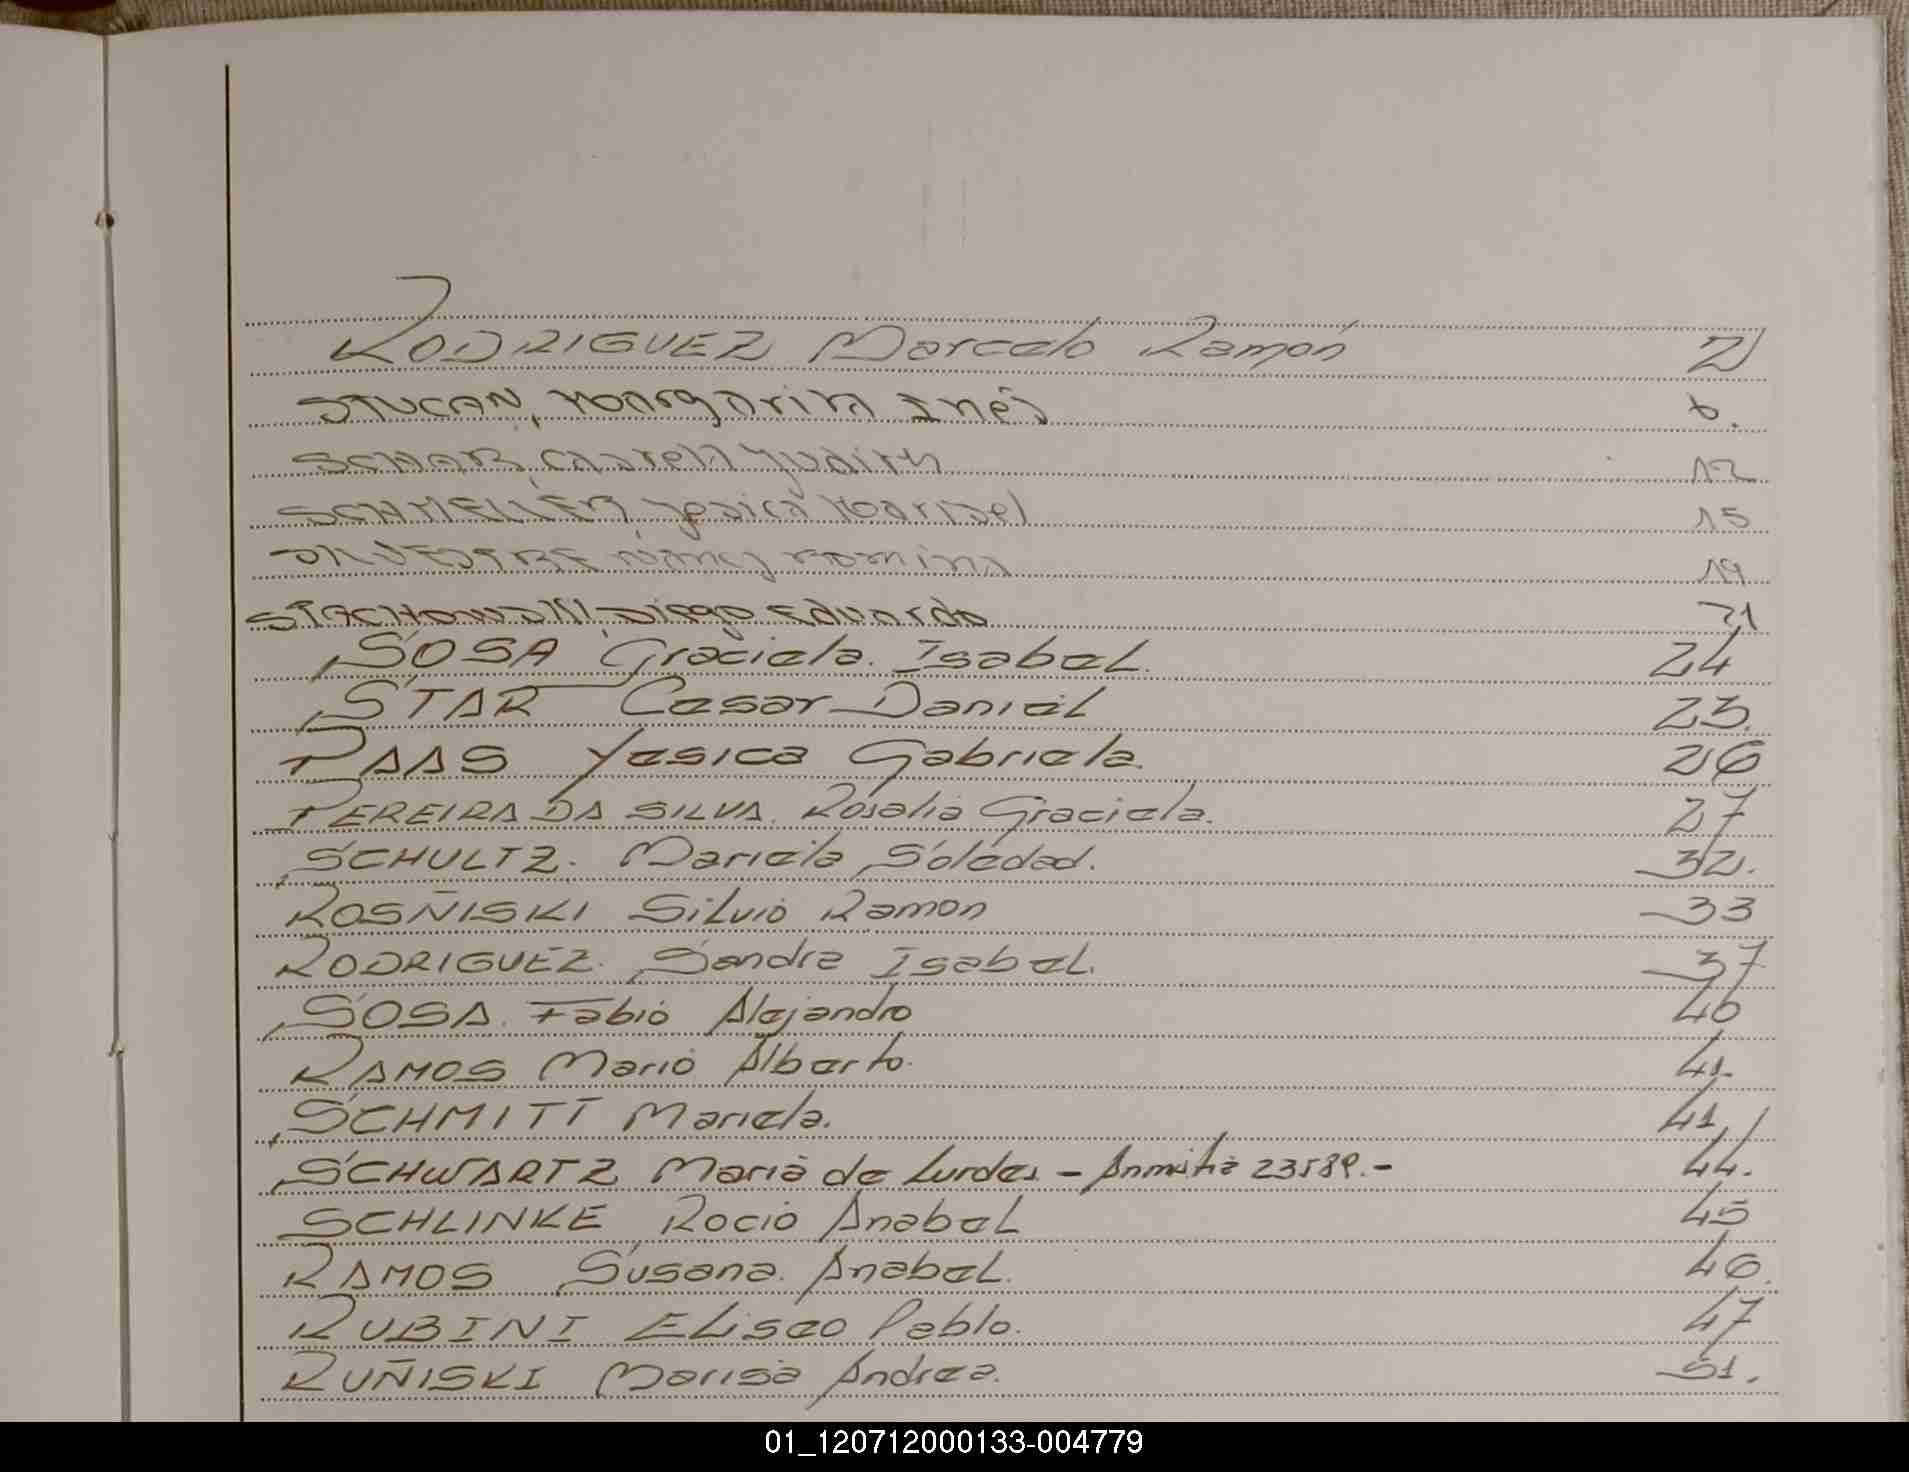 RODRIGUEZ Marcelo Ramón 2
STUCAN, Margarita Inés 6.
Judith 12
Jesica Marisel 15
SILVESTRE Nancy Romina 19
Diego Eduardo 21
SOSA Graciela. Isabel. 24
STAR Cesar Daniel 23.
PAAS Yesica Gabriela. 26
PEREIRA DA SILVA. Rosalia Graciela. 27
SCHULTZ. Mariela Soledad. 32.
ROSÑISKI Silvio Ramon 33
RODRIGUEZ. Sandra Isabel. 37
SOSA. Fabio Alejandro 40
RAMOS Mario Alberto. 41.
SCHMITT Mariela. 41
SCHWARTZ Maria de Lurdes - Amnistia 23589.- 44.
SCHLINKE Rocio Anabel 45
RAMOS Susana. Anabel. 46.
RUBINI Eliseo Pablo. 47
RUÑISKI Marisa Andrea. 51.
01_120712000133-004779